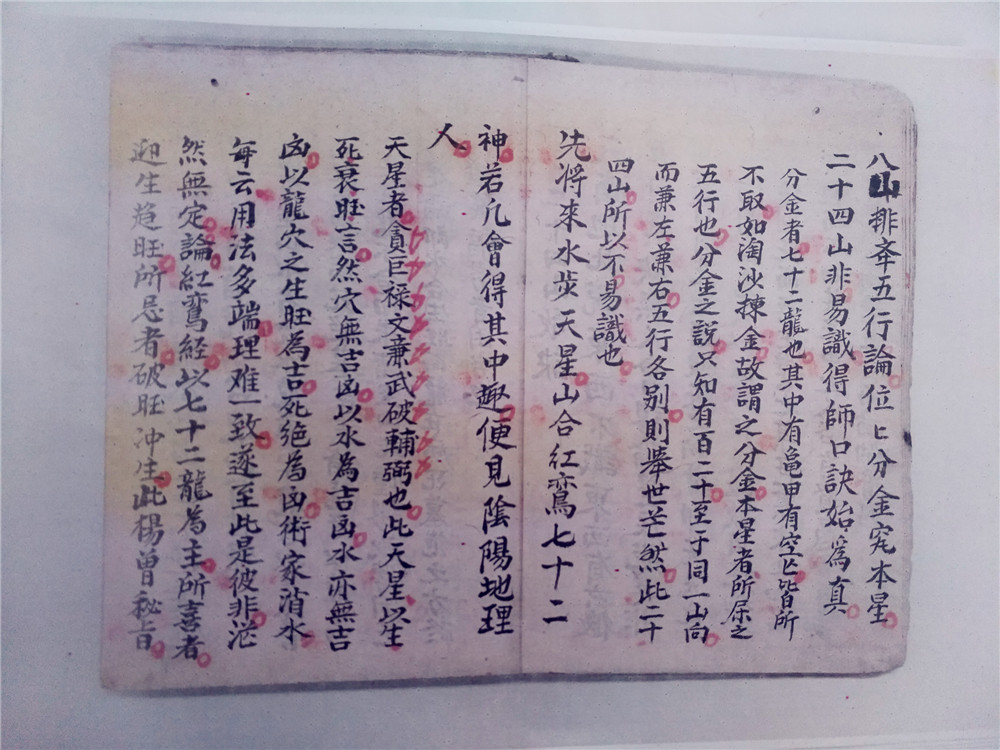 八山排來五行論位匕分金究本星
二十四山非易識得師口訣始為真
分金者七十二龍也其中有龜甲有空亡皆所
不取如淘沙揀金故謂之分金本星者所屬之
五行也分金之說只知有百二十至于同一山向
而兼左兼右五行各別則舉世茫然此二十
四山所以不易識也
先將來水步天星山合紅鸞七十二
神若凡會得其中趣便見陰陽地理
人
天星者貪巨禄文廉武破輔弼也此天星以生
死衰旺言然穴無吉凶以水為吉凶水亦無吉
凶以龍穴之生旺為吉死絕為凶術家消水
每云用法多端理难一致遂至此是彼非茫
然無定論紅鸞經以七十二龍為主所喜者
迎生趋旺所忌者破旺沖生此楊曾秘旨